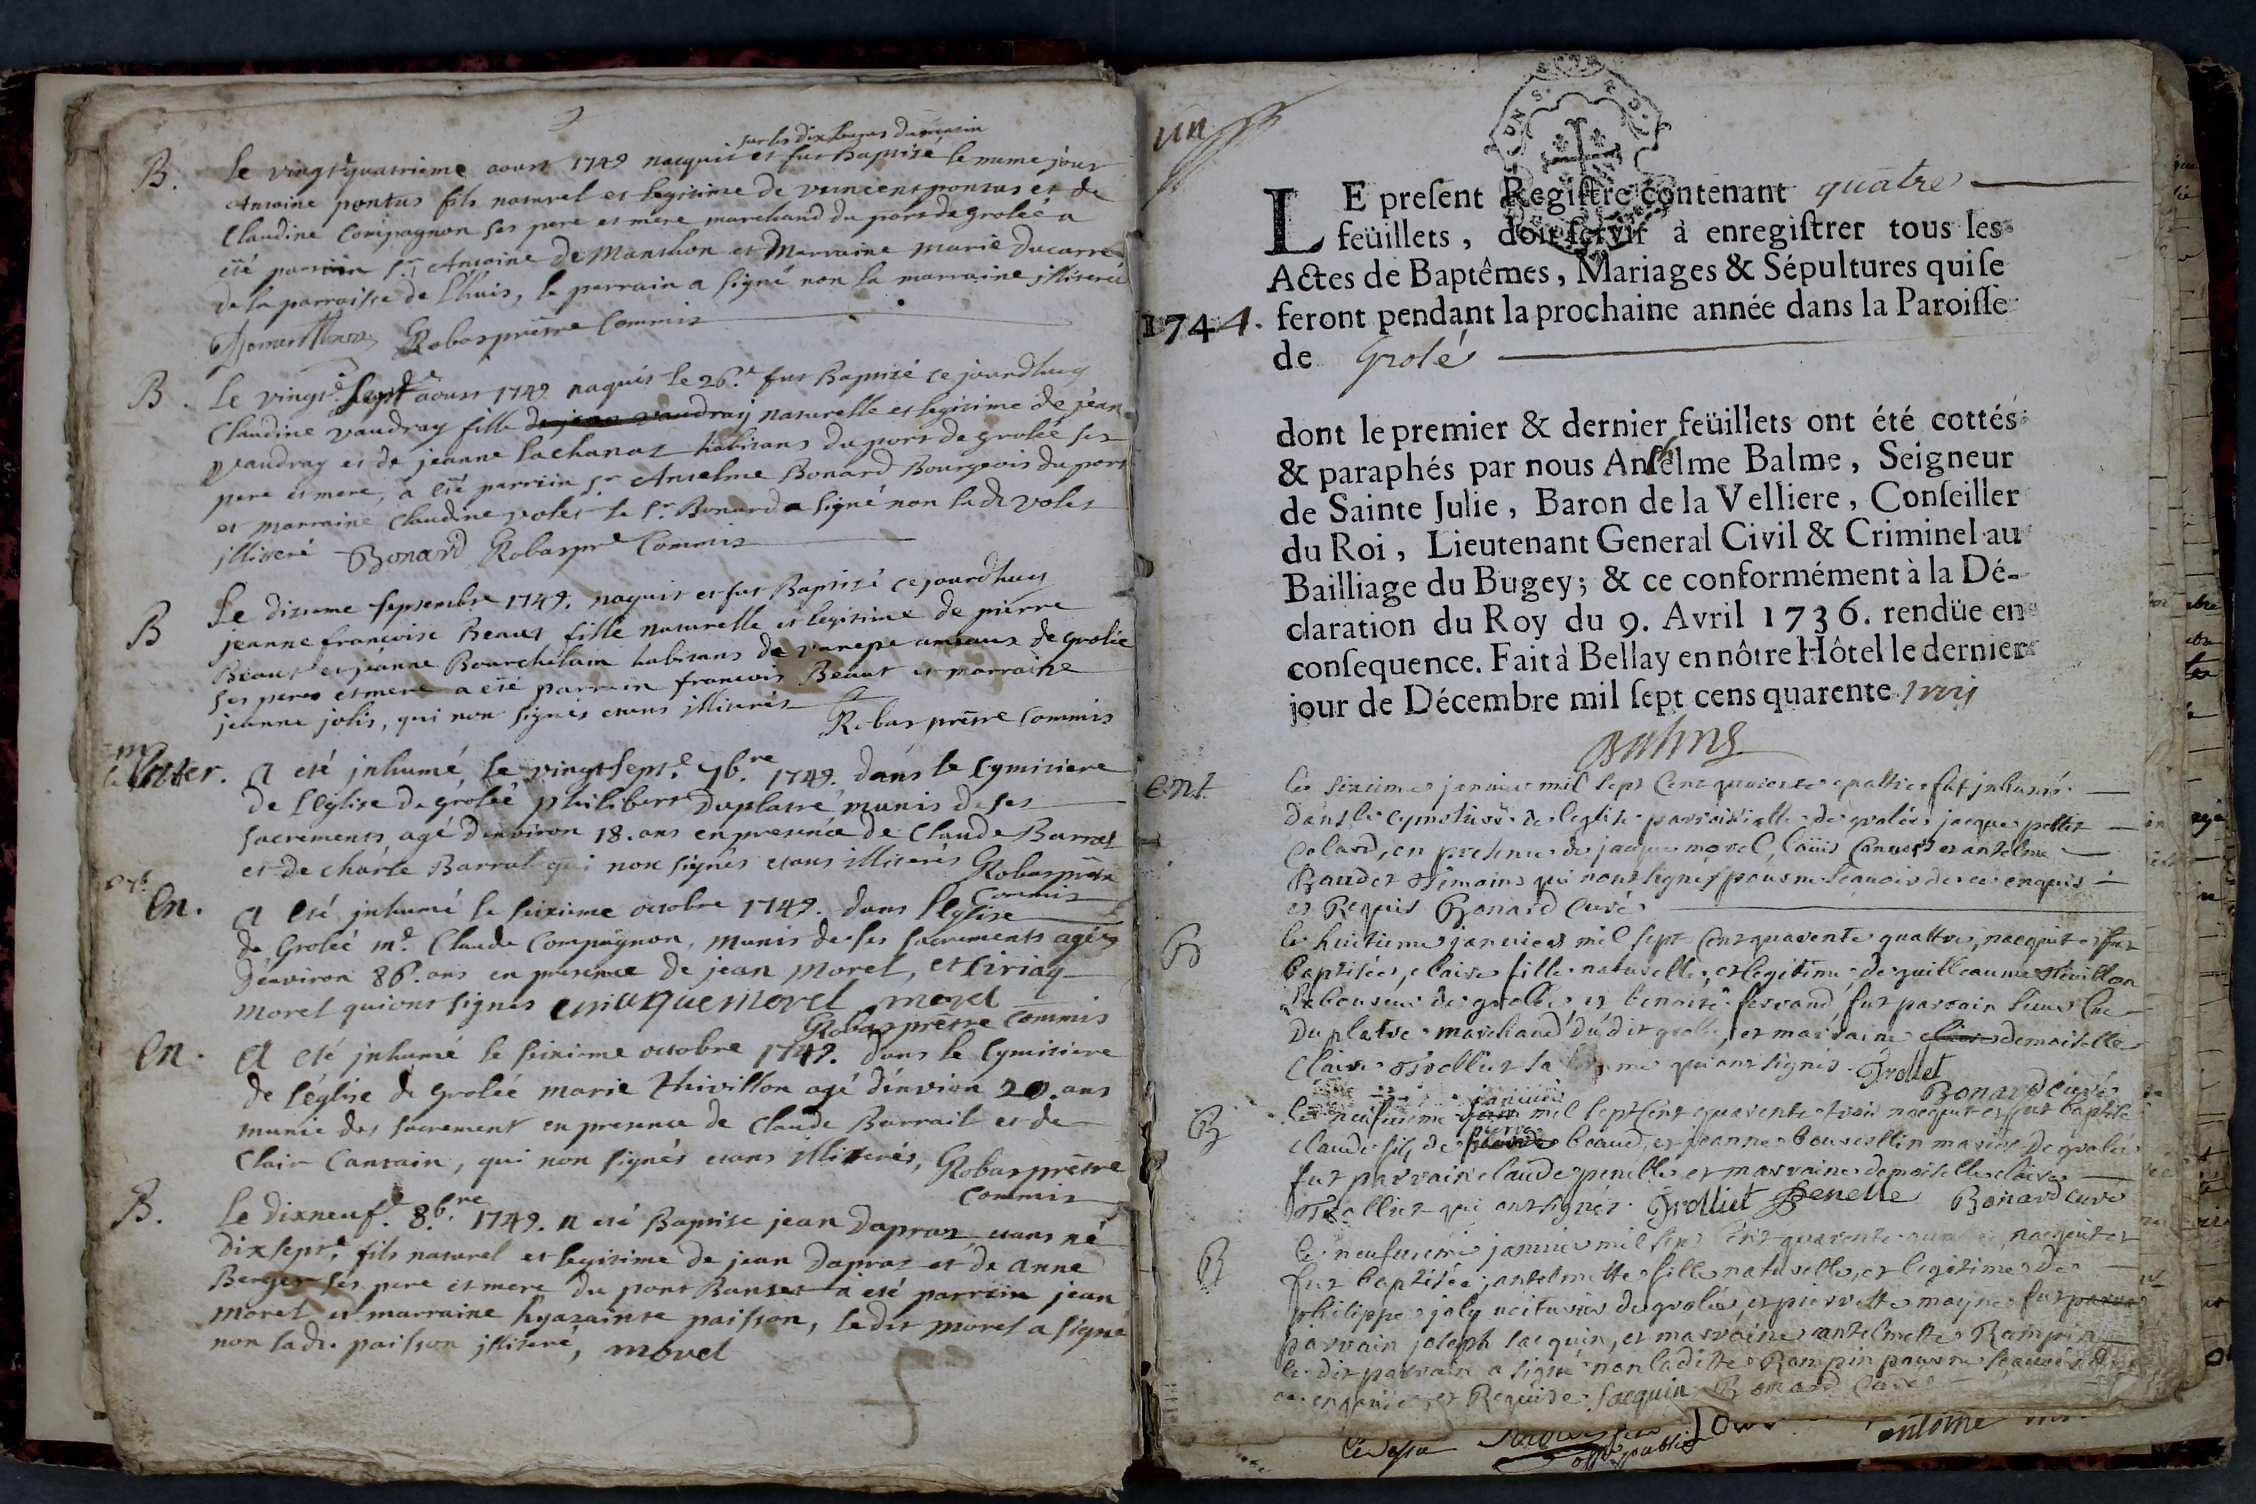 sur les dix heures du matin
B. Le vingt quatrieme aoust 1749 nacquit et fut Baptizé, le mume jour
Antoine pontus fils naturel et legitime de vuncent pontus et de
Claudine Compagnon ses pere et mere marchand du port de groleé a
eté parrain sr. Antoine de Manthon et Marraine marie ducarre
de la parroisse de Lhuis, le perrain a signé non la marraine illiteréé
Robas prêtre Commis
B. Le vingt sept aoust 1749 naquit le 26.e fut Baptizé ce jourdhuy
Claudine vaudray fille de jean vaudray naturelle et legitime de jean
vaudray et de jeanne Lachanaz habitans du port de groleé ses
pere et mere, a eté parrain sr Anselme Bonard Bourgeois du port
et marraine Claudine volet le sr. Bonard a signé non lad volet
illiteré Bonard Robas pre Commis
B Le dixieme septembre 1749. naquit et fut Baptizé ce jourdhuy
jeanne francoise Beaut fille naturelle et legitime de pierre
Beaut et jeanne Bourchélain habitans de varepe de groleé
ses pere et mere a eté parrain francois Beaut et marraine
jeanne jolis, qui non signés etans illiterés
Robas prêtre Commis
A eté inhumé, le vingt sept.e 7b.re 1749. dans le Cymitiere
de Leglise de groleé philibert Duplatre munis de ses
sacrements, agé denviron 18. ans en presence de Claude Barrat
et de charle Barrat qui non signés etans illiterés Robas prêtre
Commis
En. A eté inhumé le seizieme octobre 1749. dans l'Eglise
de Groleé md. Claude Compagnon, munis de ses sacrements agé
denviron 86. ans en presence de jean Morel, et Ciriaq
Morel qui ont signés ciriaque morel morel
Robas prêtre Commis
En. A eté inhumé le seizieme octobre 1749. dans le Cymitiere
de l'église de Groleé marie Thivillon agé dénviron 20. ans
munie des sacrement en presence de Claude Barrail et de
Clair Cantain, qui non signés etans illiterés, Robas prêtre
Commis
B. Le dixneufe. 8.bre 1749. A eté Baptise jean Dapraz etans né
dixsepte. fils naturel et legitime de jean Dapraz et de anne
Berger ses pere et mere du pont Banset a eté parrain jean
Morel et marraine hyazainte paisson, ledit morel a signé
non lad. paisson illiteré, morel
un
LE present Registre contenant quatre
feüillets, doit servir à enregistrer tous les
Actes de Baptêmes, Mariages & Sépultures qui se
1744. feront pendant la prochaine année dans la Paroisse
de Grolé
dont le premier & dernier feüillets ont été cottés
& paraphés par nous Anthelme Balme, Seigneur
de Sainte Julie, Baron de la Velliere, Conseiller
du Roi, Lieutenant General Civil & Criminel au
Bailliage du Bugey; & ce conformément à la Dé-
claration du Roy du 9. Avril 1736. rendüe en
consequence. Fait à Bellay en nôtre Hôtel le dernier
jour de Décembre mil sept cens quarente trois
Balme
ent. Le sixieme janvier mil sept cent quarente quattre fut inhumé
dans le cymetiere de leglise parroissialle de grolée jacque pellet
Colard, en presence de jacque morel, Loüis et antelme
Baudet témoins qui nont signés pour ne scavoir de ce enquis
et Requis Bonard Curé
B Le huitieme janvier mil sept cent quarente quattre, nacquit et fut
baptisée, claire fille naturelle, et legitime de guilleaume thivillon
Laboureur de grolée et benoite ferrand, fut parrain sieur Luc
Duplatre marchand du dit grolée, et marraine demoiselle
Claire trolliet sa femme qui ont signés. Trollet
Bonard curé
B Le neufvieme janvier mil sept cent quarente trois nacquit et fut baptisé
claude fils de pierre beaud, et jeanne bourcellin mariés de grolée
fut parrain claude penelle et marraine demoiselle claire
trolliet qui ont signés. Trolliet Penelle Bonard curé
B Le neufvieme janvier mil sept cent quarente nacquit et
fut baptisée, antelmette fille naturelle, et legitime de
philippe joly voiturier de grolée, et pierrette moyne fut
parrain joseph jacquin, et marraine antelmette Rampin
le dit parrain a signé non la ditte Rampin pour ne scavoir
enquise et Requise. Jacquin Bonard Curé
antoine